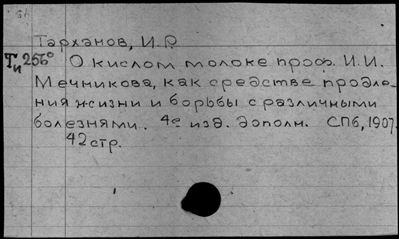 Тарханов, И.Р
Ти 256° О кислом молоке проф. И.И.
Мечникова, как средстве продле-
ния жизни и борьбы с различными
болезнями. 4е изд. дополн. СПб, 1907.
42 стр.